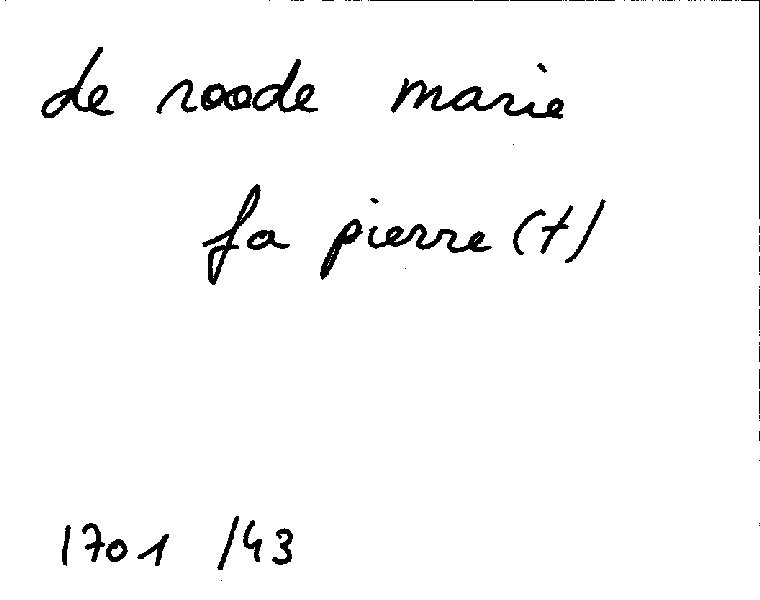 de roode marie
fa pierre (+)
1701 /43